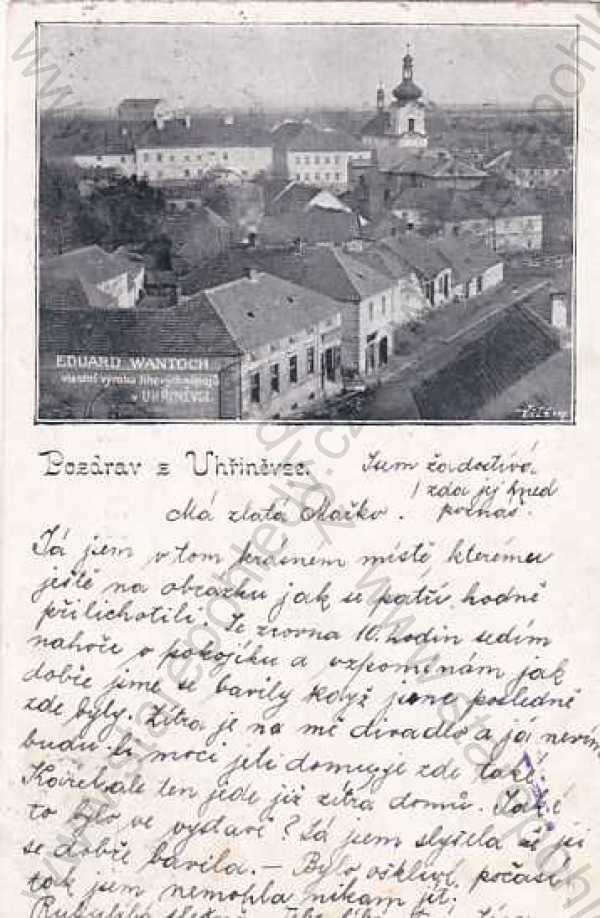 EDUARD WANTOCH
vlastní výroba lihových nápojů
v UHŘÍNĚVSI.
Pozdrav z Uhříněvze.
Jsem žádostivá,
zda jej hned
poznáš.
Má zlatá Mačko.
Já jsem v tom krásném místě, kterému
ještě na obrázku jak se patří hodně
přilichotili. Je zrovna 10. hodin sedím
nahoře v pokojíku a vzpomínám jak
dobře jsme se bavily když jsme posledně
zde byly. Zítra je na mě divadlo a já nevím
budu-li moci jeti domu, je zde také
ale ten jede již zítra domů. Jaké
to bylo ve výstavě? Já jsem slyšela že jsi
se dobře bavila. — Bylo ošklivé počasí
tak jsem nemohla nikam jít.
www.starepohledy.cz